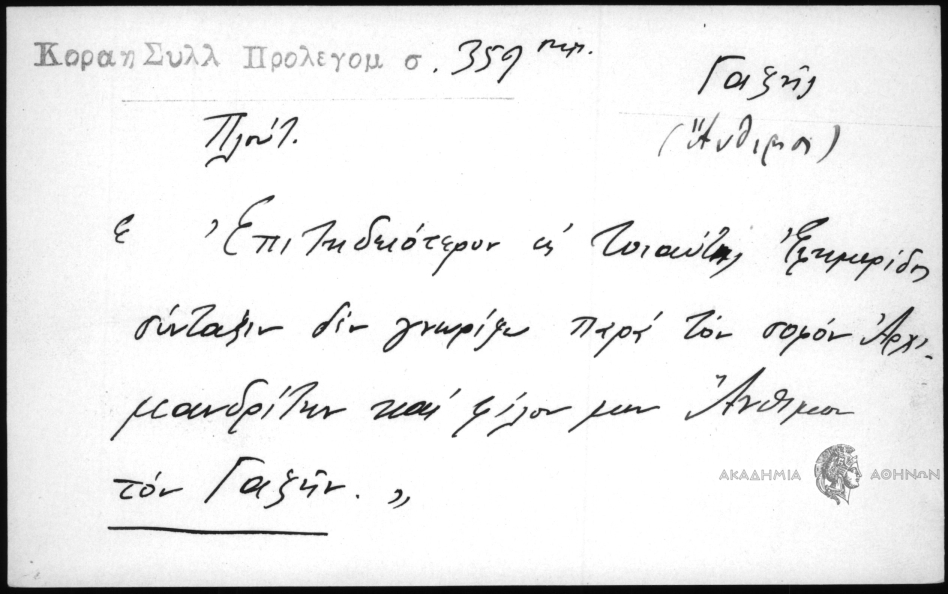 Κοραη Συλλ Προλεγομ σ. 359
Γαζῆς
Πλούτ.
(Ἄνθιμος)
« Ἐπιτηδειότερον εἰς τοιαύτης Ἐφημερίδος
σύνταξιν δέν γνωρίζω παρά τόν σοφόν Ἀρχι-
μανδρίτην καί φίλον μου Ἄνθιμον
τόν Γαζῆν. »
ΑΚΑΔΗΜΙΑ ΑΘΗΝΩΝ